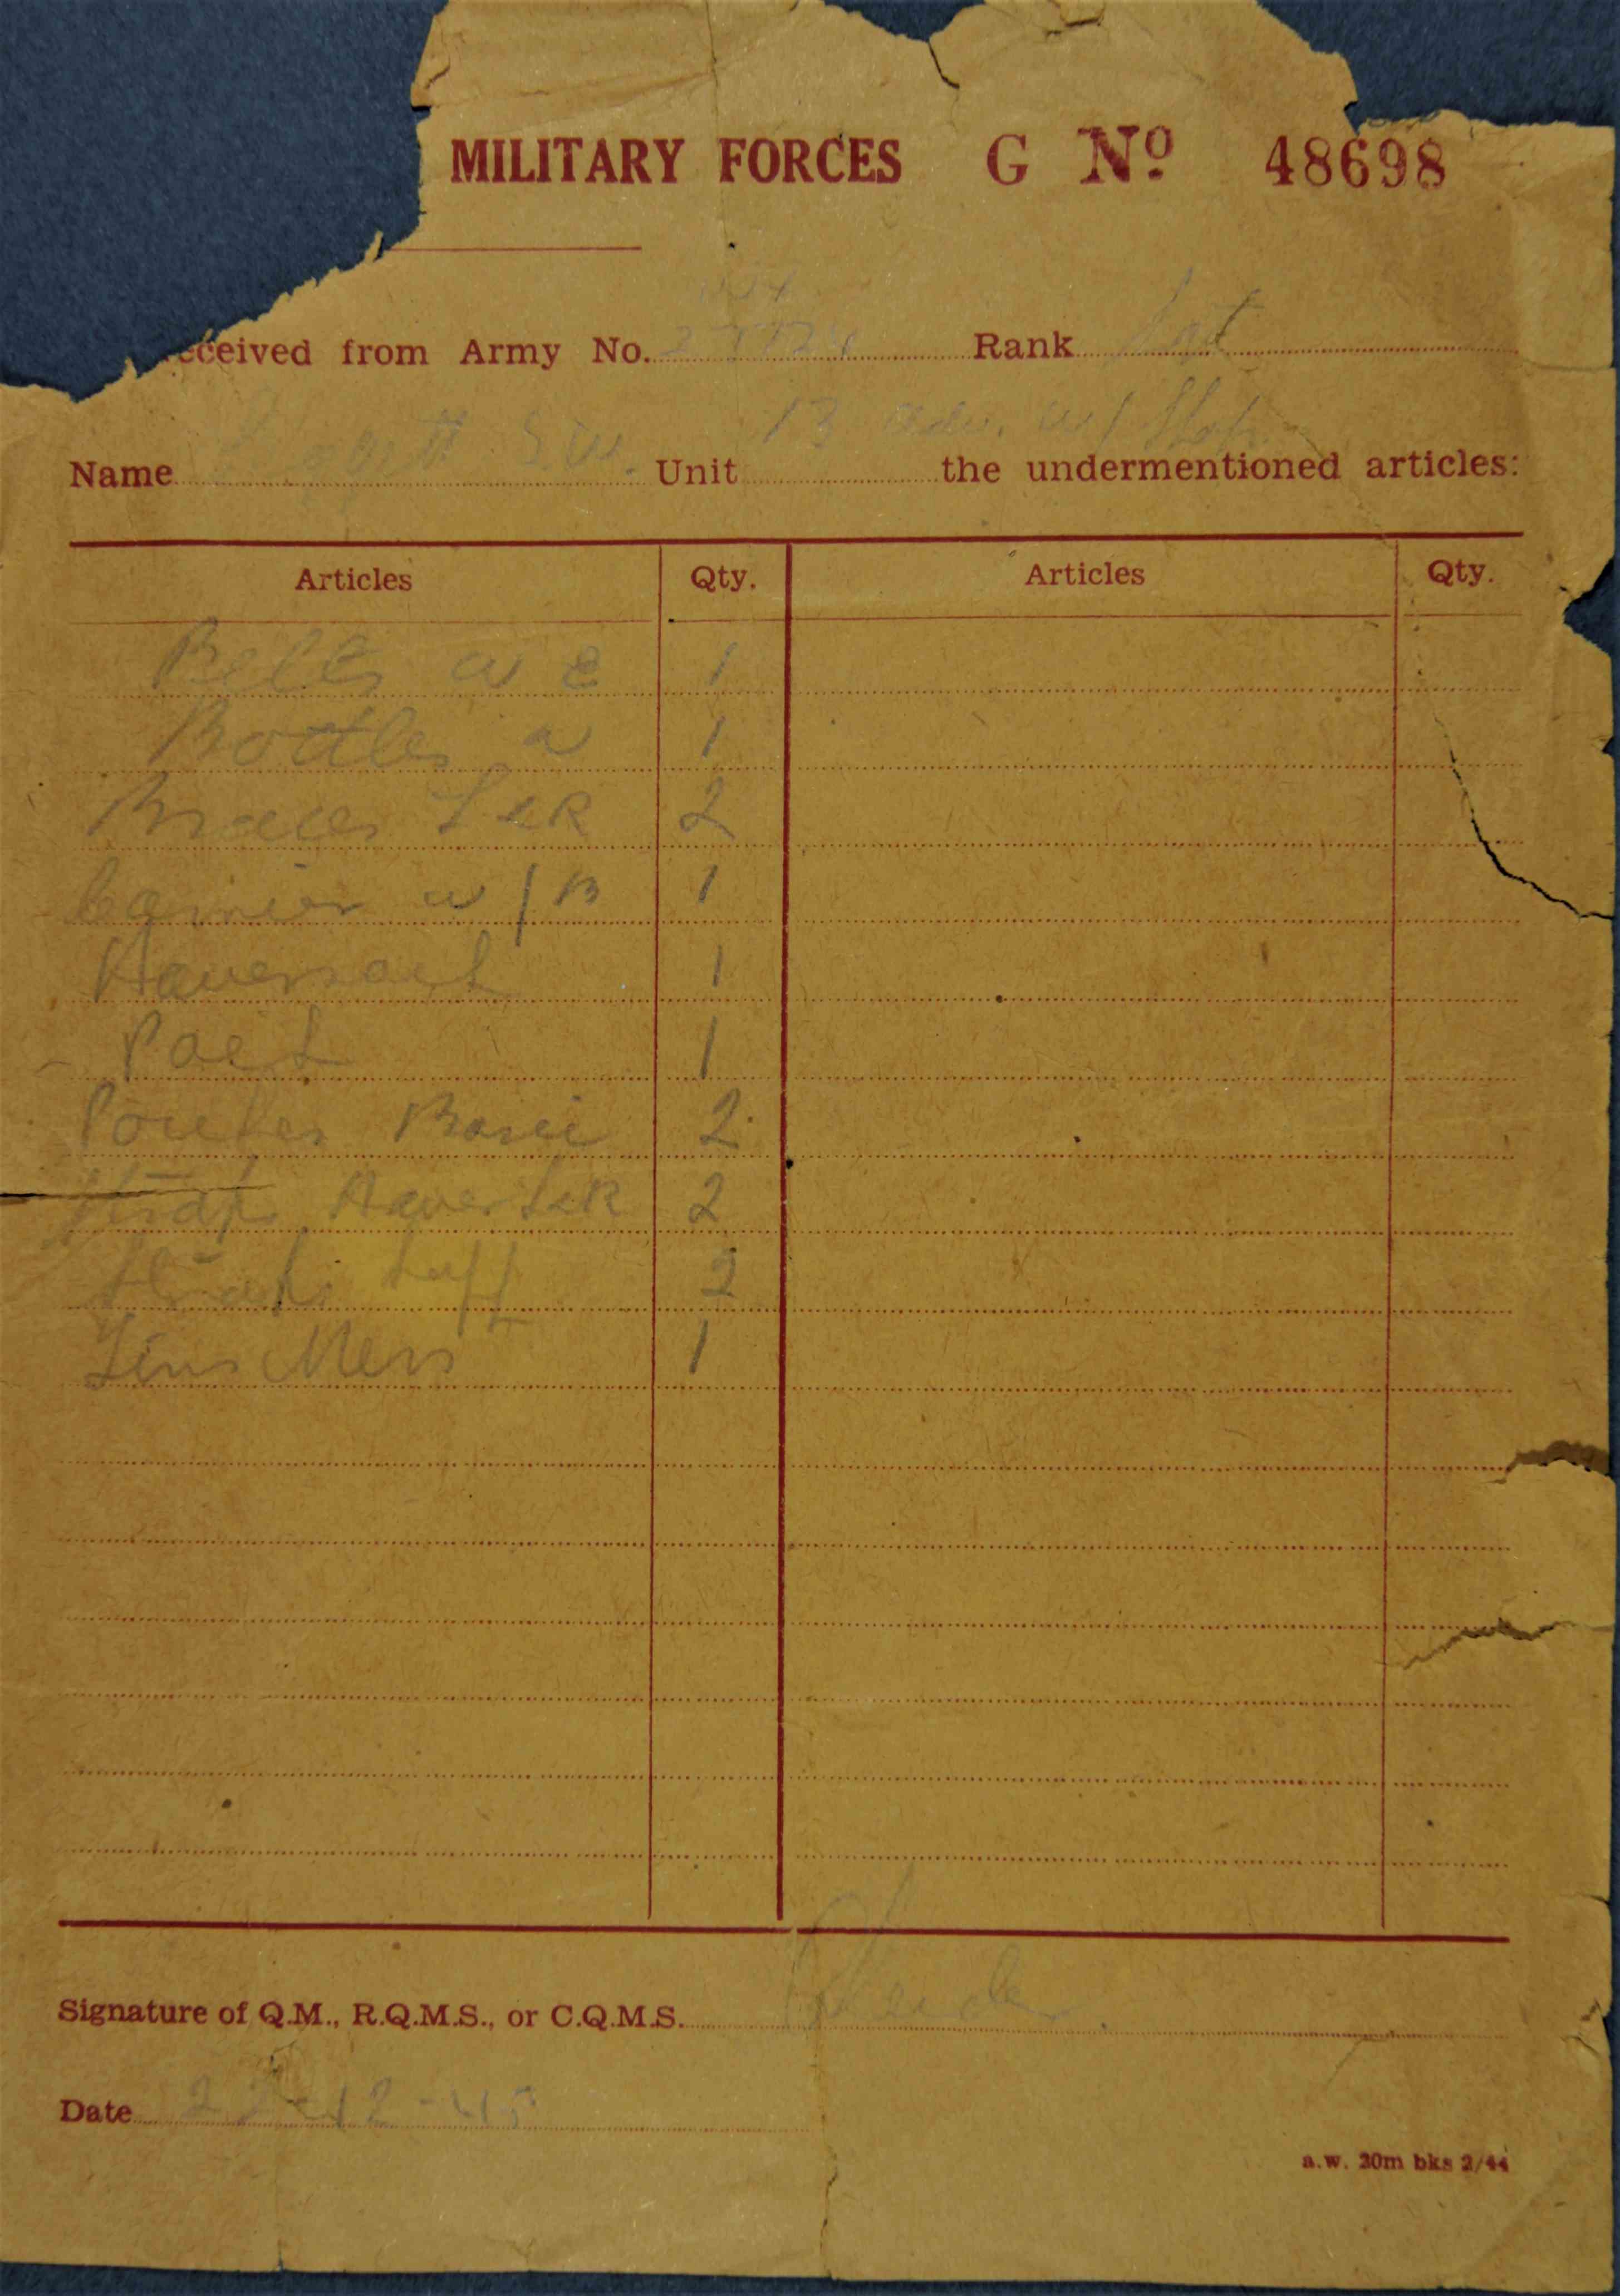 MILITARY FORCES G Nº 48698
eceived from Army No. Rank Sgt
13 Adv. W/Shop
Name S.W. Unit the undermentioned articles:
Articles Qty. Articles Qty.
Belts W E 1
Bottles W 1
Braces L & R 2
Carrier W/B 1
Haversack 1
Pack 1
Pouches Basic 2
Straps Haver L & R 2
Straps 2
Tins Mess 1
Signature of Q.M., R.Q.M.S., or C.Q.M.S.
Date -12-45
a.w. 20m bks 2/44